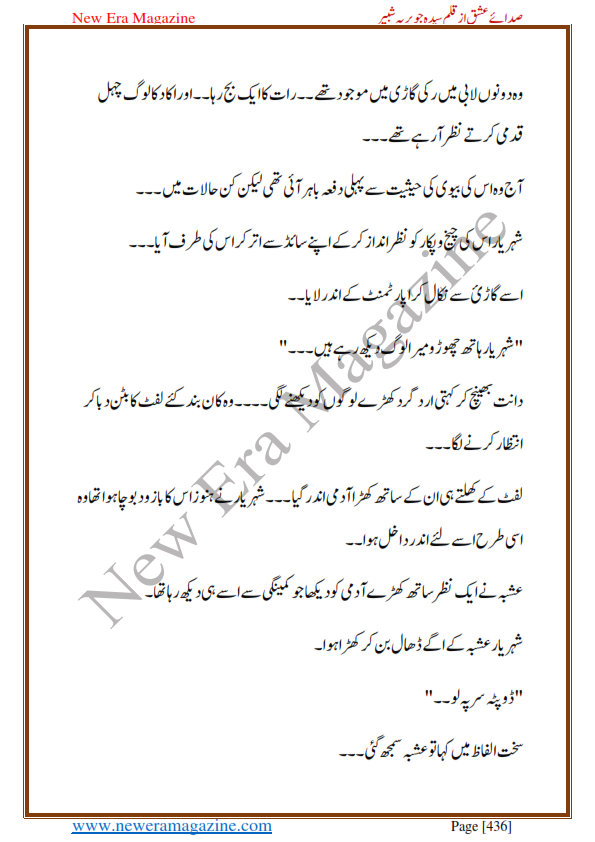 New Era Magazine صدائے عشق از قلم سیدہ جویریہ شبیر
وہ دونوں لابی میں رکی گاڑی میں موجود تھے۔۔رات کا ایک بج رہا۔۔اور اکا دکا لوگ چہل
قدمی کرتے نظر آرہے تھے۔۔۔
آج وہ اس کی بیوی کی حیثیت سے پہلی دفعہ باہر آئی تھی لیکن کن حالات میں۔۔۔
شہریار اس کی چیخ و پکار کو نظر انداز کر کے اپنے سائڈ سے اتر کر اس کی طرف آیا۔۔۔
اسے گاڑئ سے نکال کر اپارٹمنٹ کے اندر لایا۔۔
"شہریار ہاتھ چھوڑو میرا لوگ دیکھ رہے ہیں۔۔۔"
دانت بھینچ کر کہتی ارد گرد کھڑے لوگوں کو دیکھنے لگی۔۔۔۔وہ کان بند کئے لفٹ کا بٹن دبا کر
انتظار کرنے لگا۔۔۔
لفٹ کے کھلتے ہی ان کے ساتھ کھڑا آدمی اندر گیا۔۔۔شہریار نے ہنوز اس کا بازو دبوچا ہوا تھا وہ
اسی طرح اسے لئے اندر داخل ہوا۔۔
عشبہ نے ایک نظر ساتھ کھڑے آدمی کو دیکھا جو کمینگی سے اسے ہی دیکھ رہا تھا۔
شہریار عشبہ کے اگے ڈھال بن کر کھڑا ہوا۔
"ڈوپٹہ سر پہ لو۔۔"
سخت الفاظ میں کہا تو عشبہ سمجھ گئی۔۔۔
New Era Magazine
www.neweramagazine.com Page [436]